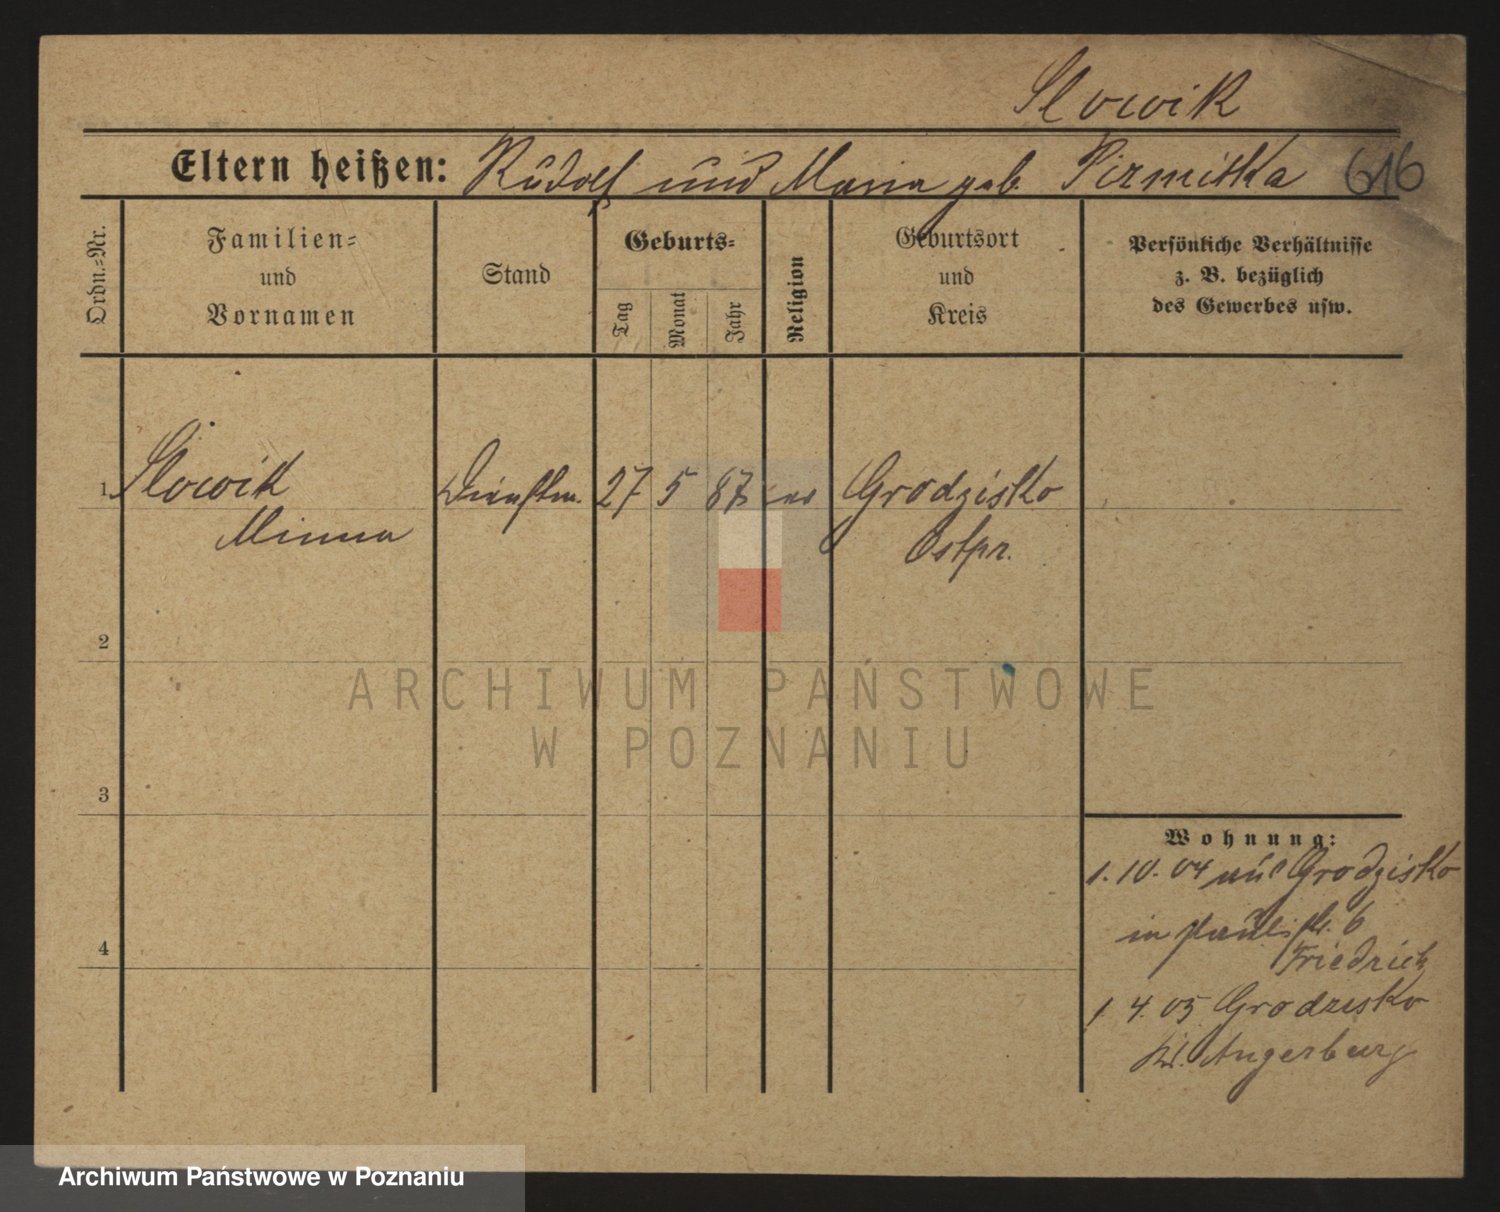 Slowik
Eltern heißen: Rudolf und Maria geb. Pirmitka 616
Ordn.-Nr.
Familien-
und
Vornamen
Stand
Geburts-
Tag
Monat
Jahr
Religion
Geburtsort
und
Kreis
Persönliche Verhältnisse
z. B. bezüglich
des Gewerbes usw.
1 Slowik Dienstm. 27 5 87 ev Grodzisko
Minna Ostpr.
2
ARCHIWUM PAŃSTWOWE
W POZNANIU
3
Wohnung:
1.10.04 aus Grodzisko
in Paulistr. 6
4
Friedrich
1 4.05 Grodzisko
Kr. Angerburg
Archiwum Państwowe w Poznaniu